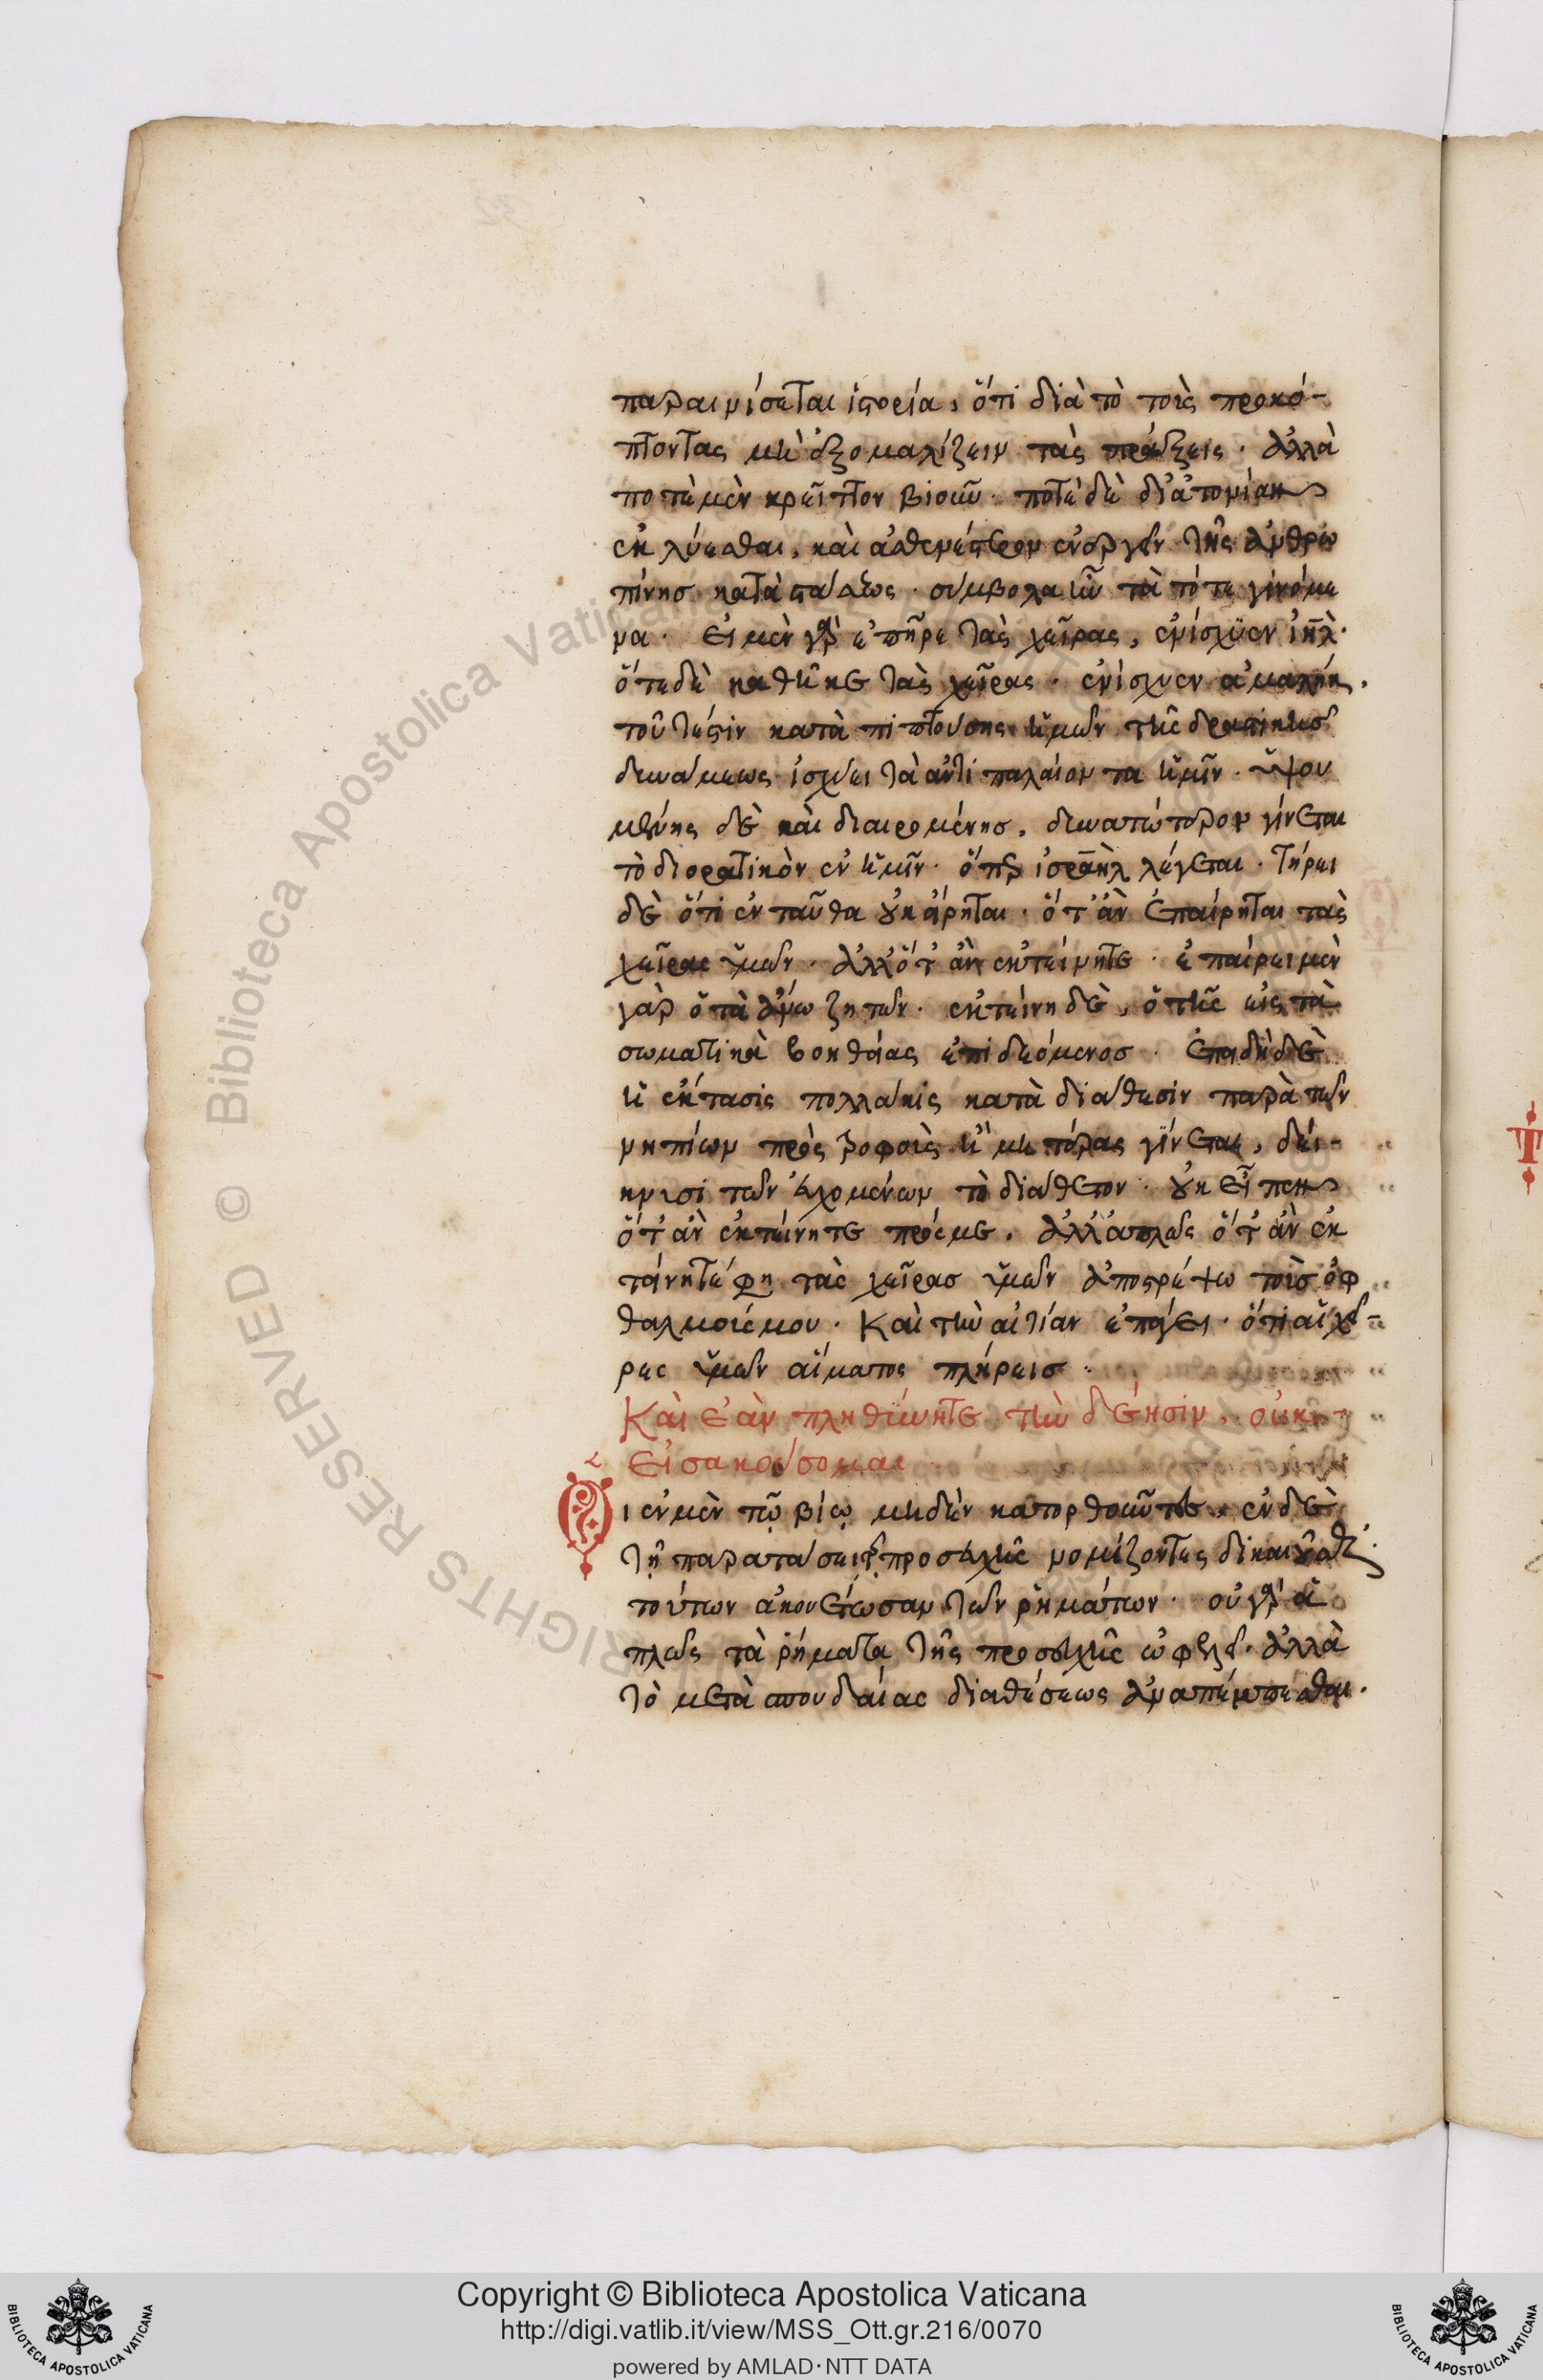 παραινίσεται ἱστορία, ὅτι διὰ τὸ τοὺς προκό-
πτοντας μὴ ἐξομαλίζειν τὰς πράξεις · ἀλλὰ
ποτὲ μὲν κρεῖττον βιοῦν · ποτὲ δὲ δι' ἀτονίαν
ἐκλύεσθαι, καὶ ἀσθενέστερον ἐνεργεῖν τῆς ἀνθρω
πίνης καταστάσεως · σύμβολα ἦν τὰ τότε γινόμε
να · εἰ μὲν γὰρ ἐπῆρε τὰς χεῖρας, ἐνίσχυεν ἰηλ ·
ὅτε δὲ καθῆκε τὰς χεῖρας · ἐνίσχυεν ἀμαλήκ.
τοῦτέστιν καταπιπτούσης ἡμῶν τῆς δραστικῆς
δυνάμεως ἰσχύει τὰ ἀντιπαλαίοντα ἡμῖν · ὑψου
μένης δὲ καὶ διαιρομένης, δυνατώτερον γίνεται
τὸ διορατικὸν ἐν ἡμῖν · ὅπερ ἰσραὴλ λέγεται · τήρει
δὲ ὅτι ἐνταῦθα οὐκ εἴρηται · ὅτ' ἂν ἐπαίρηται τὰς
χεῖρας ὑμῶν · ἀλλ' ὅτ' ἂν ἐκτείνητε · ἐπαίρει μὲν
γὰρ ὁ τὰ ἄνω ζητῶν · ἐκτείνη δὲ, ὁ τῆς εἰς τὰ
σωματικὰ βοηθείας ἐπιδεόμενος · ἐπειδὴ δὲ
ἡ ἔκτασις πολλάκις κατὰ διάθεσιν παρὰ τῶν
νηπίων πρὸς τροφοὺς ἢ μητέρας γίνεται, δεί-
κνυσι τῶν εὐχομένων τὸ διάθετον · οὐκ εἶπεν
ὅτ' ἂν ἐκτείνητε πρός με, ἀλλ' ἁπλῶς ὅτ' ἂν ἐκ
τείνητέ φη τὰς χεῖρας ὑμῶν ἀποστρέψω τοὺς ὀφ
θαλμούς μου · Καὶ τὴν αἰτίαν ἐπάγει · ὅτι αἱ χεῖ-
ρες ὑμῶν αἵματος πλήρεις ·
Καὶ ἐὰν πληθύνητε τὴν δέησιν, οὐκ
εἰσακούσομαι
Οἱ ἐν μὲν τῷ βίῳ μηδὲν κατορθοῦντες, ἐν δὲ
τῇ παρατάσει τῆς προσευχῆς νομίζοντες δικαιοῦσθαι ·
τούτων ἀκουέτωσαν τῶν ῥημάτων · οὐ γὰρ ἁ
πλῶς τὰ ῥήματα τῆς προσευχῆς ὠφελεῖ · ἀλλὰ
τὸ μετὰ σπουδαίας διαθέσεως ἀναπέμπεσθαι.
Copyright © Biblioteca Apostolica Vaticana
http://digi.vatlib.it/view/MSS_Ott.gr.216/0070
powered by AMLAD·NTT DATA